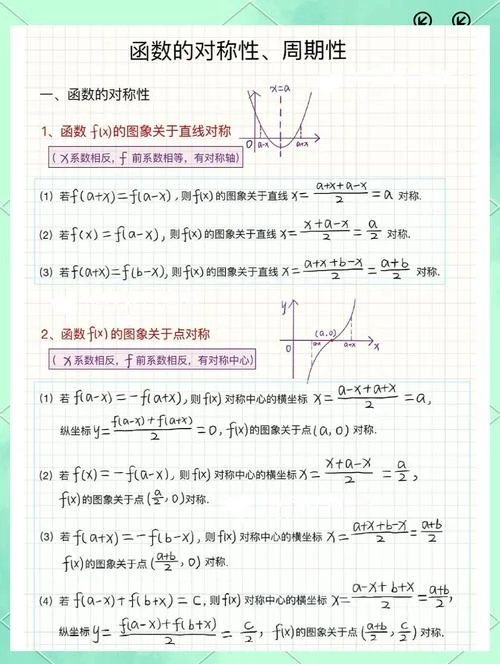 函数的对称性、周期性
一、函数的对称性
x=a
0 a-x a+x
1、函数 f(x)的图象关于直线对称
(x系数相反, f 前系数相等, 有对称轴)
(1) 若f(a+x)=f(a-x), 则f(x)的图象关于直线 x=\frac{a+x+a-x}{2}=a 对称.
(2) 若f(x)=f(a-x), 则f(x)的图象关于直线 x=\frac{x+a-x}{2}=\frac{a}{2} 对称.
(3) 若f(a+x)=f(b-x), 则f(x)的图象关于直线 x=\frac{a+x+b-x}{2}=\frac{a+b}{2} 对称.
y
(a,0)
0 a-x a+x x
2、函数f(x)的图象关于点对称
(x系数相反, f 前系数相反, 有对称中心)
(1) 若 f(a-x)=-f(a+x), 则f(x) 对称中心的横坐标 x=\frac{a-x+a+x}{2}=a,
纵坐标 y=\frac{f(a-x)+f(a+x)}{2}=0, f(x)的图象关于点(a,0)对称.
(2) 若 f(x)=-f(a-x), 则f(x) 对称中心的横坐标 x=\frac{x+a-x}{2}=\frac{a}{2},
f(x)的图象关于点(\frac{a}{2},0)对称.
(3) 若 f(a+x)=-f(b-x), 则f(x) 对称中心的横坐标 x=\frac{a+x+b-x}{2}=\frac{a+b}{2}
f(x)的图象关于点(\frac{a+b}{2},0) 对称.
(4) 若 f(a-x)+f(b+x)=C, 则f(x) 对称中心的横坐标 x=\frac{a-x+b+x}{2}=\frac{a+b}{2},
纵坐标 y=\frac{f(a-x)+f(b+x)}{2}=\frac{C}{2}, f(x)的图象关于点(\frac{a+b}{2},\frac{C}{2})对称.